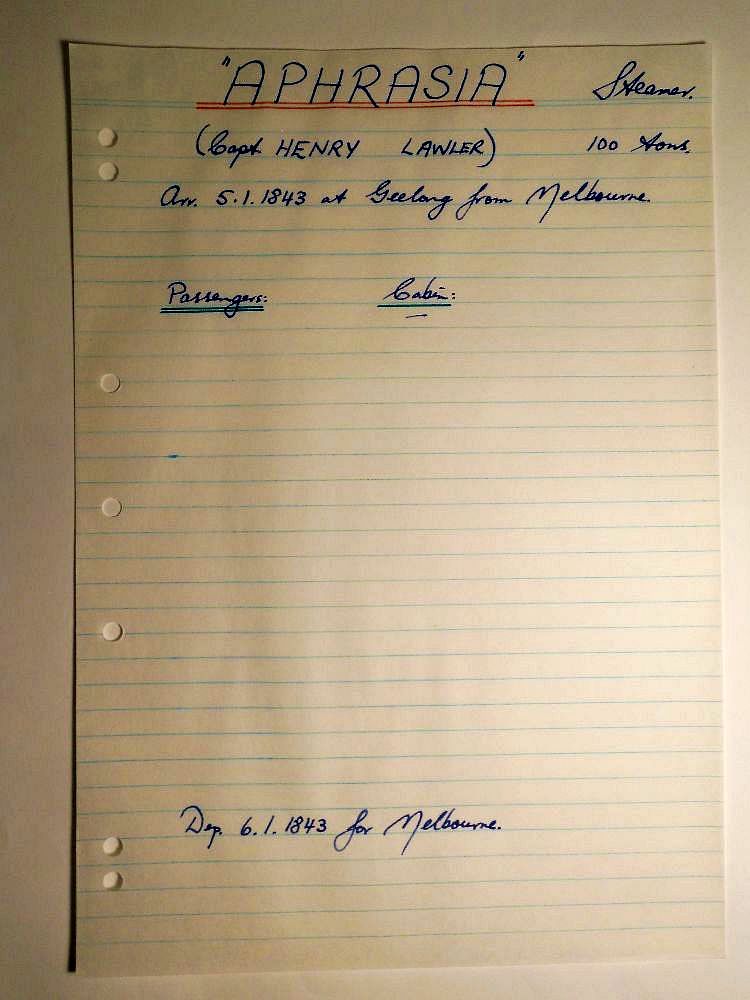 "APHRASIA" Steamer.
(Capt HENRY LAWLER) 100 tons.
Arr. 5.1.1843 at Geelong from Melbourne.
Passengers: Cabin:
Dep. 6.1.1843 for Melbourne.